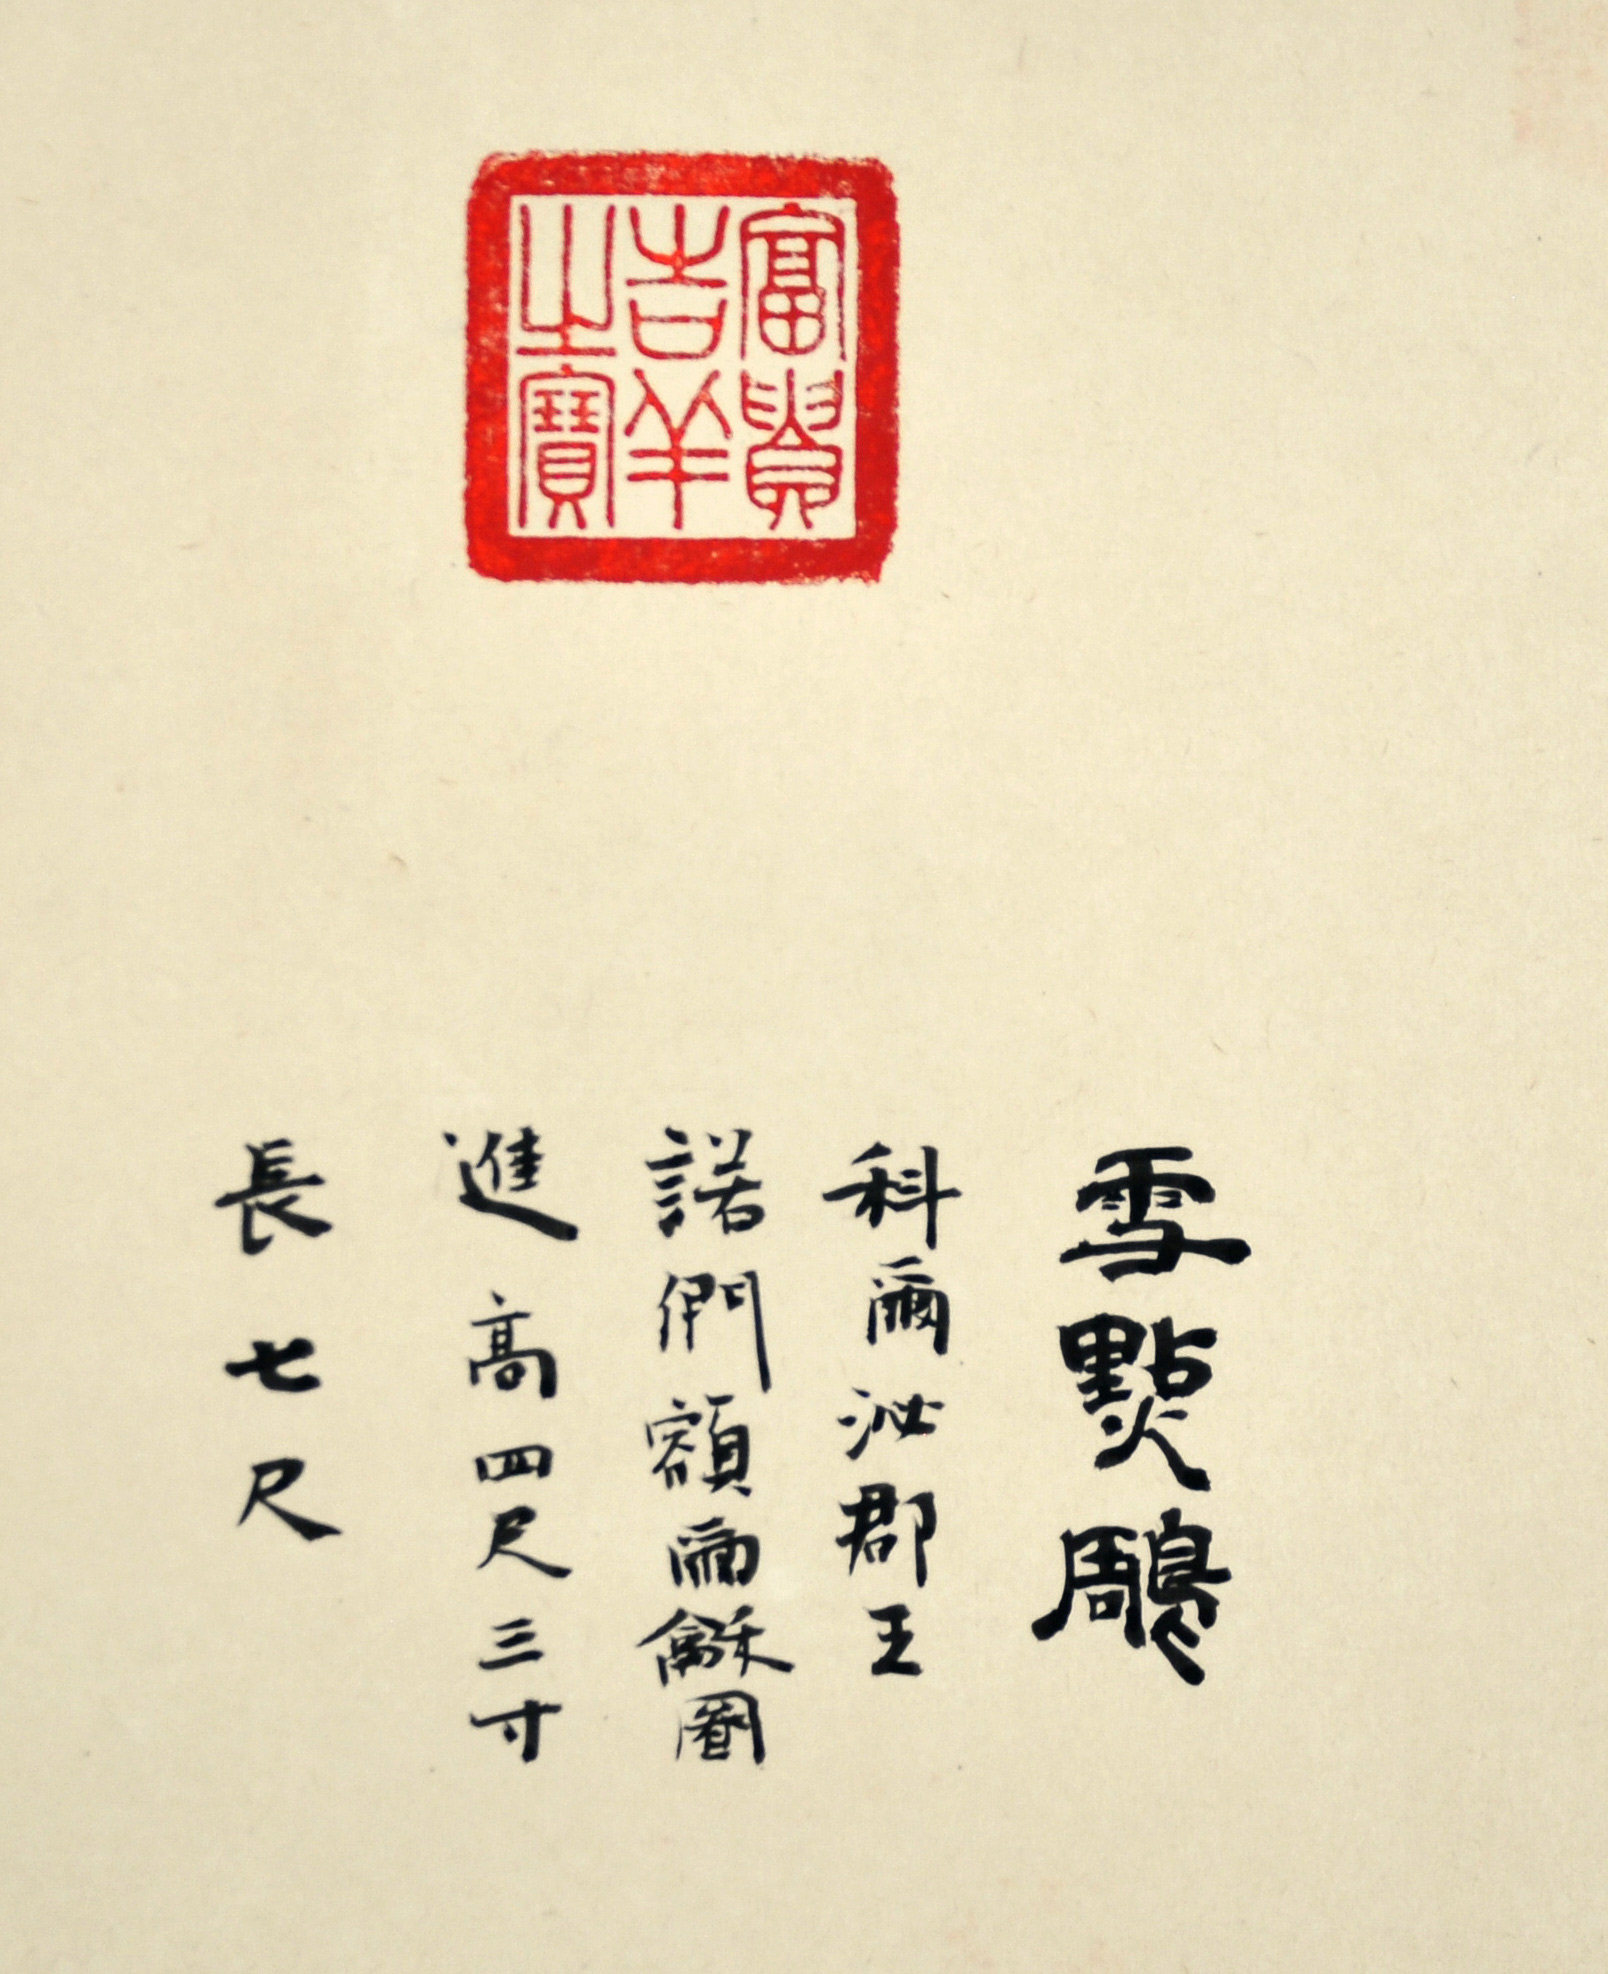 富貴
吉羊
之寶
雪點鵰
科爾沁郡王
諾們額爾龢圖
進 高四尺三寸
長七尺